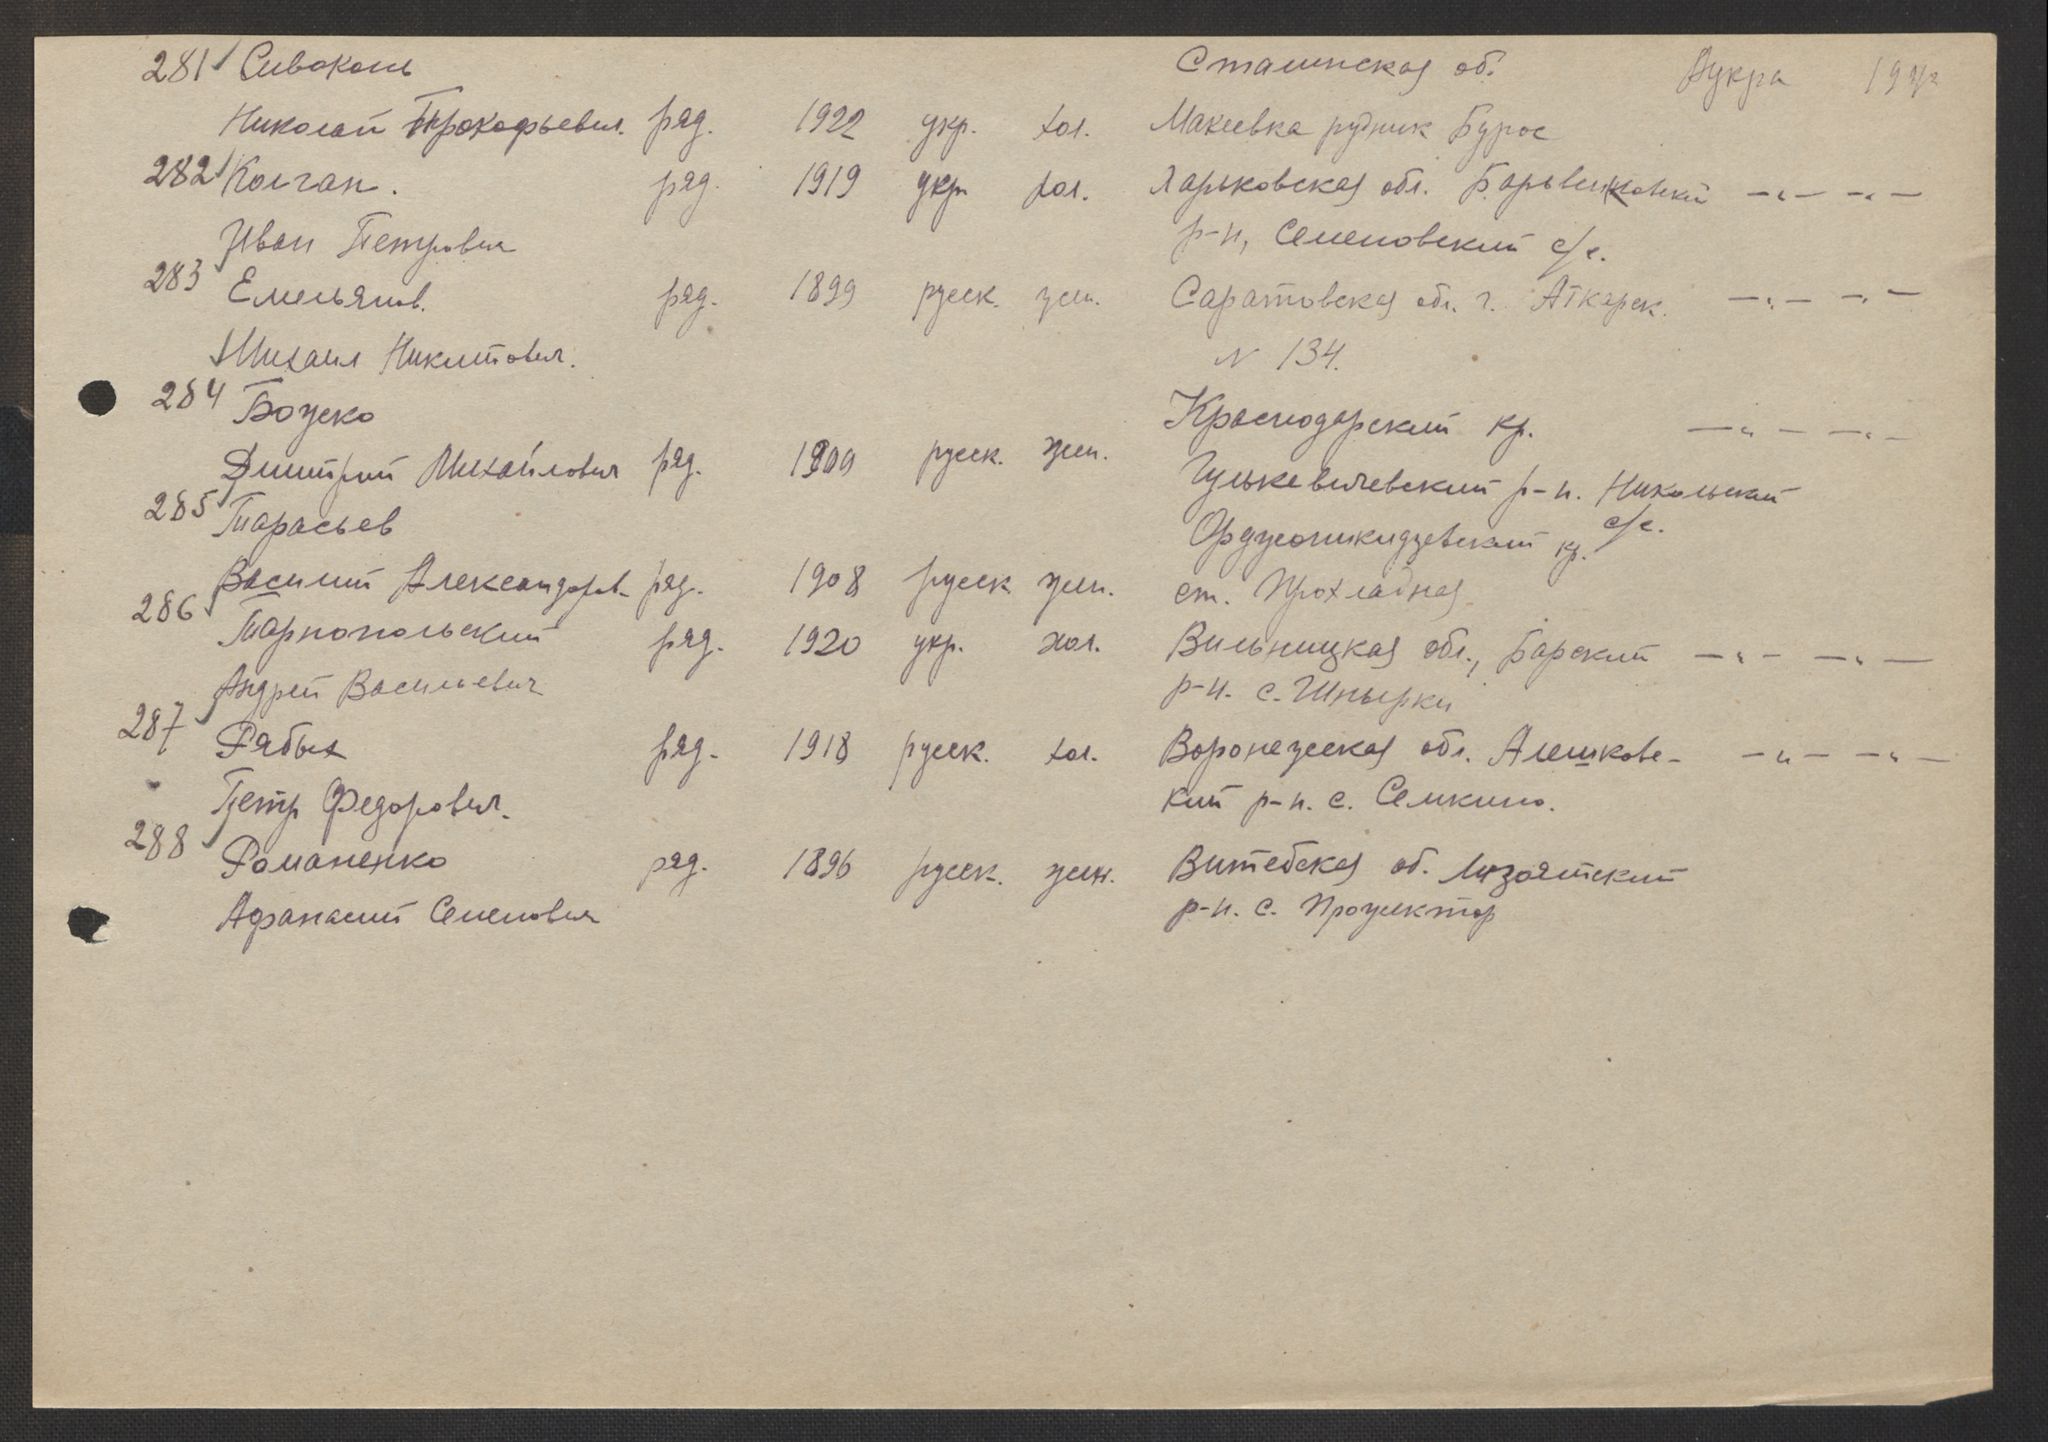 281 Сивоконь Сталинская об. Дукра
Николай Прокофьевич. ряд. 1922 укр. хол. Макеевка рудник Бурос
282 Колган. ряд. 1919 укр. хол. Харьковская обл. Барвенковский —"— —"—
Иван Петрович р-н, Семеновский с/с.
283 Емельянов. ряд. 1899 русск. жен. Саратовская обл. г. Аткарск. —"— —"—
Михаил Никитович. N 134.
284 Божско Краснодарский кр. —"— —"—
Дмитрий Михайлович ряд. 1909 русск. жен. Гулькевичевский р-н. Никольский
с/с.
285 Тарасьев Орджоникидзевский кр.
Василий Александров. ряд. 1908 русск жен. ст. Прохладная
286 Тарнопольский ряд. 1920 укр. хол. Вильницкая обл., Барский —"— —"—
Андрей Васильевич р-н. с. Шпырки
287 Рябых ряд. 1918 русск. хол. Воронежская обл. Алешковс- —"— —"—
Петр Федорович. кий р-н. с. Семкино.
288 Романенко ряд. 1896 русск. жен. Витебская об. Лизоятский
Афанасий Семенович р-н. с. Прожектор